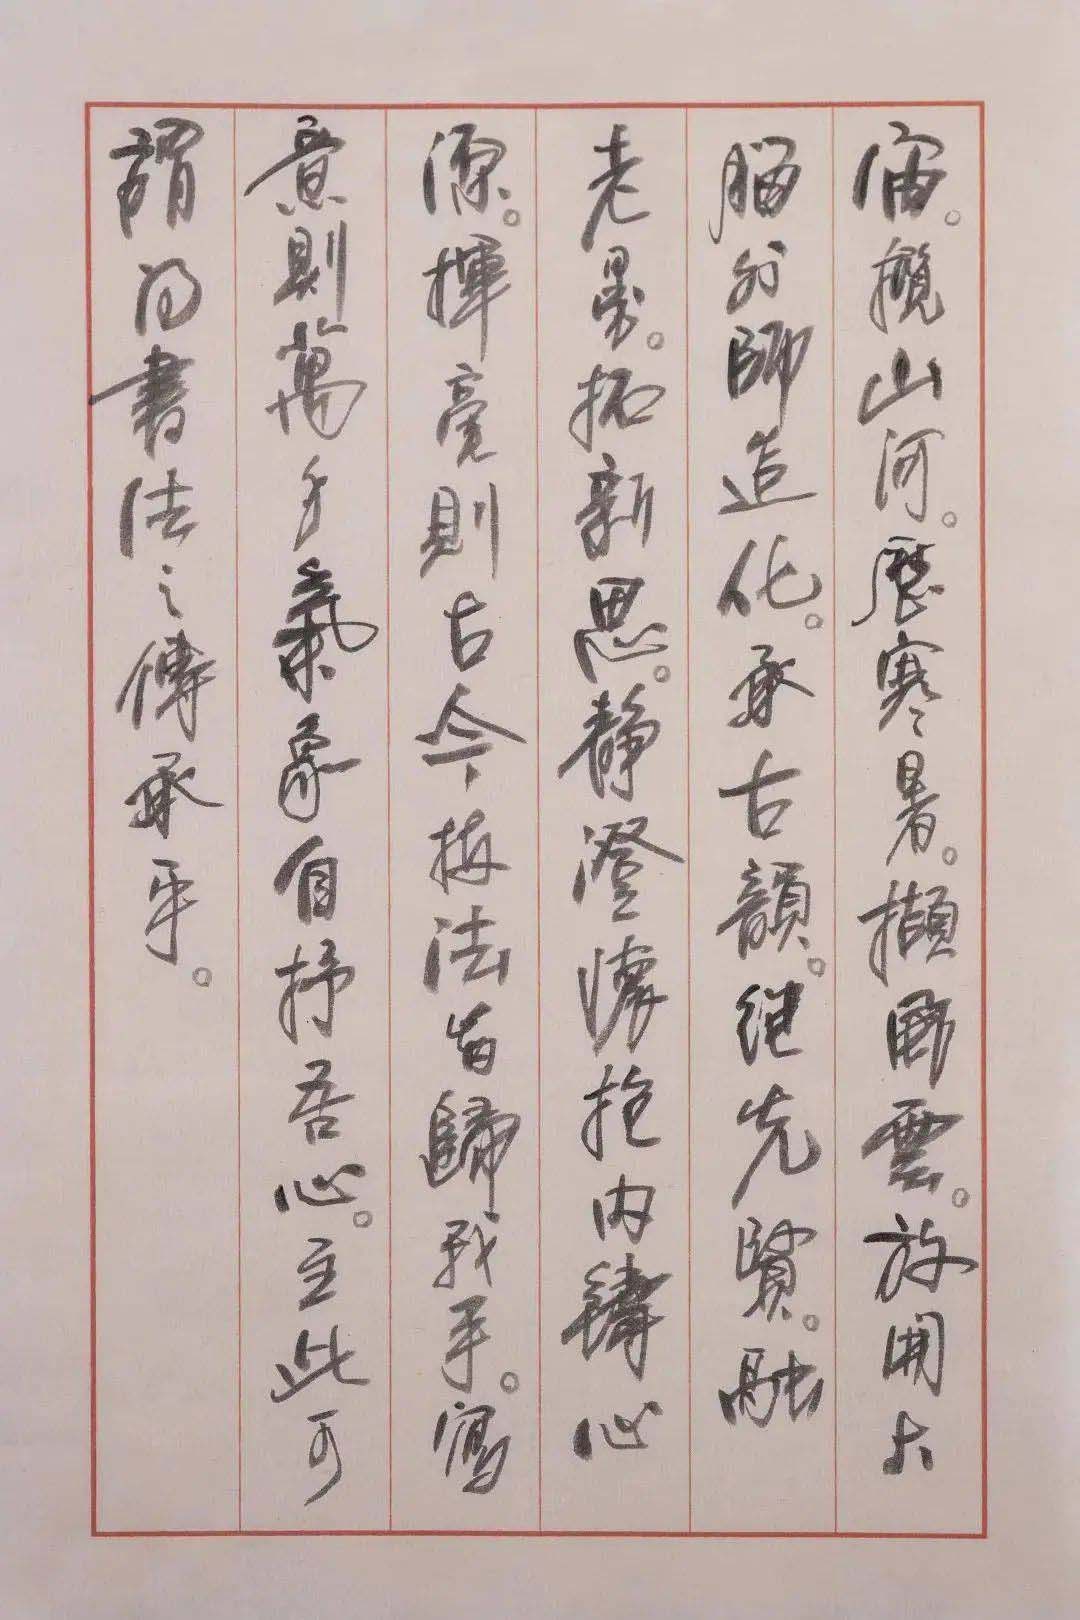 宙。攬山河。歷寒暑。擷風雲。放開大
腦外師造化。承古韻。继先賢。融
老墨。拓新思。静澄懷抱内鑄心
源。揮毫則古今梅法皆歸我手。寫
意則萬千氣象自抒吾心。至此可
謂得書法之傳承乎。